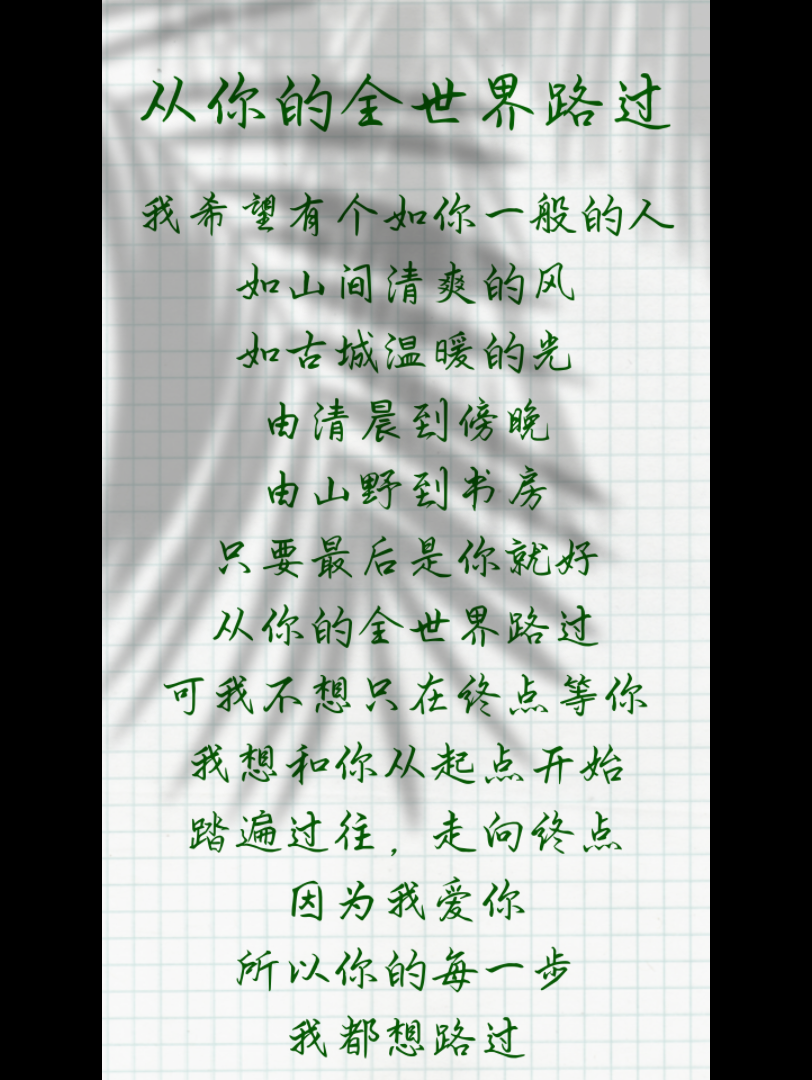 从你的全世界路过
我希望有个如你一般的人
如山间清爽的风
如古城温暖的光
由清晨到傍晚
由山野到书房
只要最后是你就好
从你的全世界路过
可我不想只在终点等你
我想和你从起点开始
踏遍过往，走向终点
因为我爱你
所以你的每一步
我都想路过